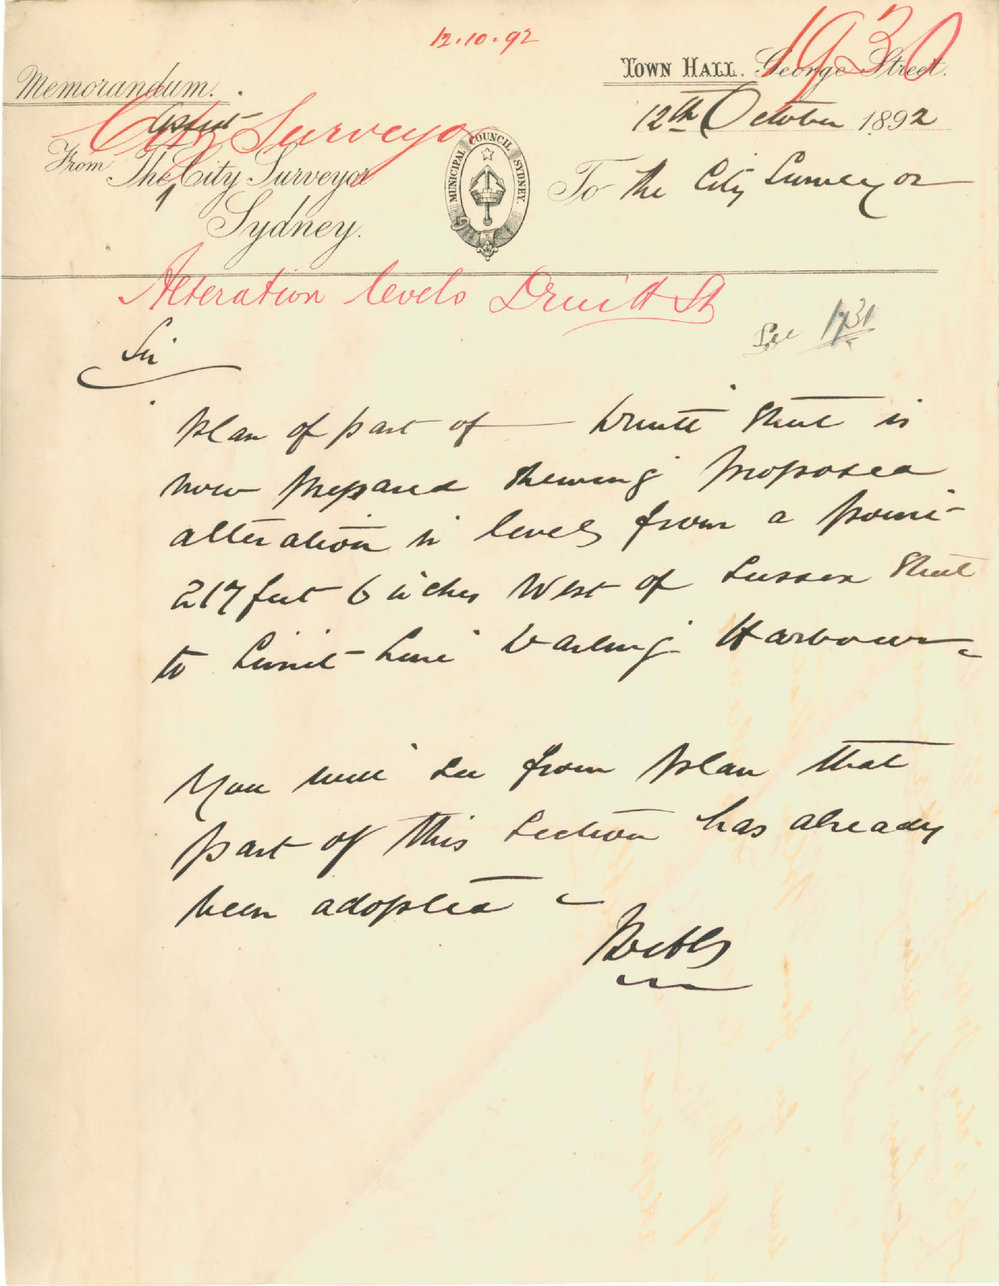 12.10.92
1930
Memorandum.
TOWN HALL. George Street.
12th October 1892
City Surveyor
From The Assist City Surveyor
Sydney.
MUNICIPAL COUNCIL SYDNEY.
To the City Surveyor
Alteration levels Druitt St
See 1731
Sir
Plan of part of Druitt Street is
now prepared shewing proposed
alteration in levels from a point
217 feet 6 inches West of Sussex Street
to Limit-Line Darling Harbour
You will see from plan that
part of this section has already
been adopted